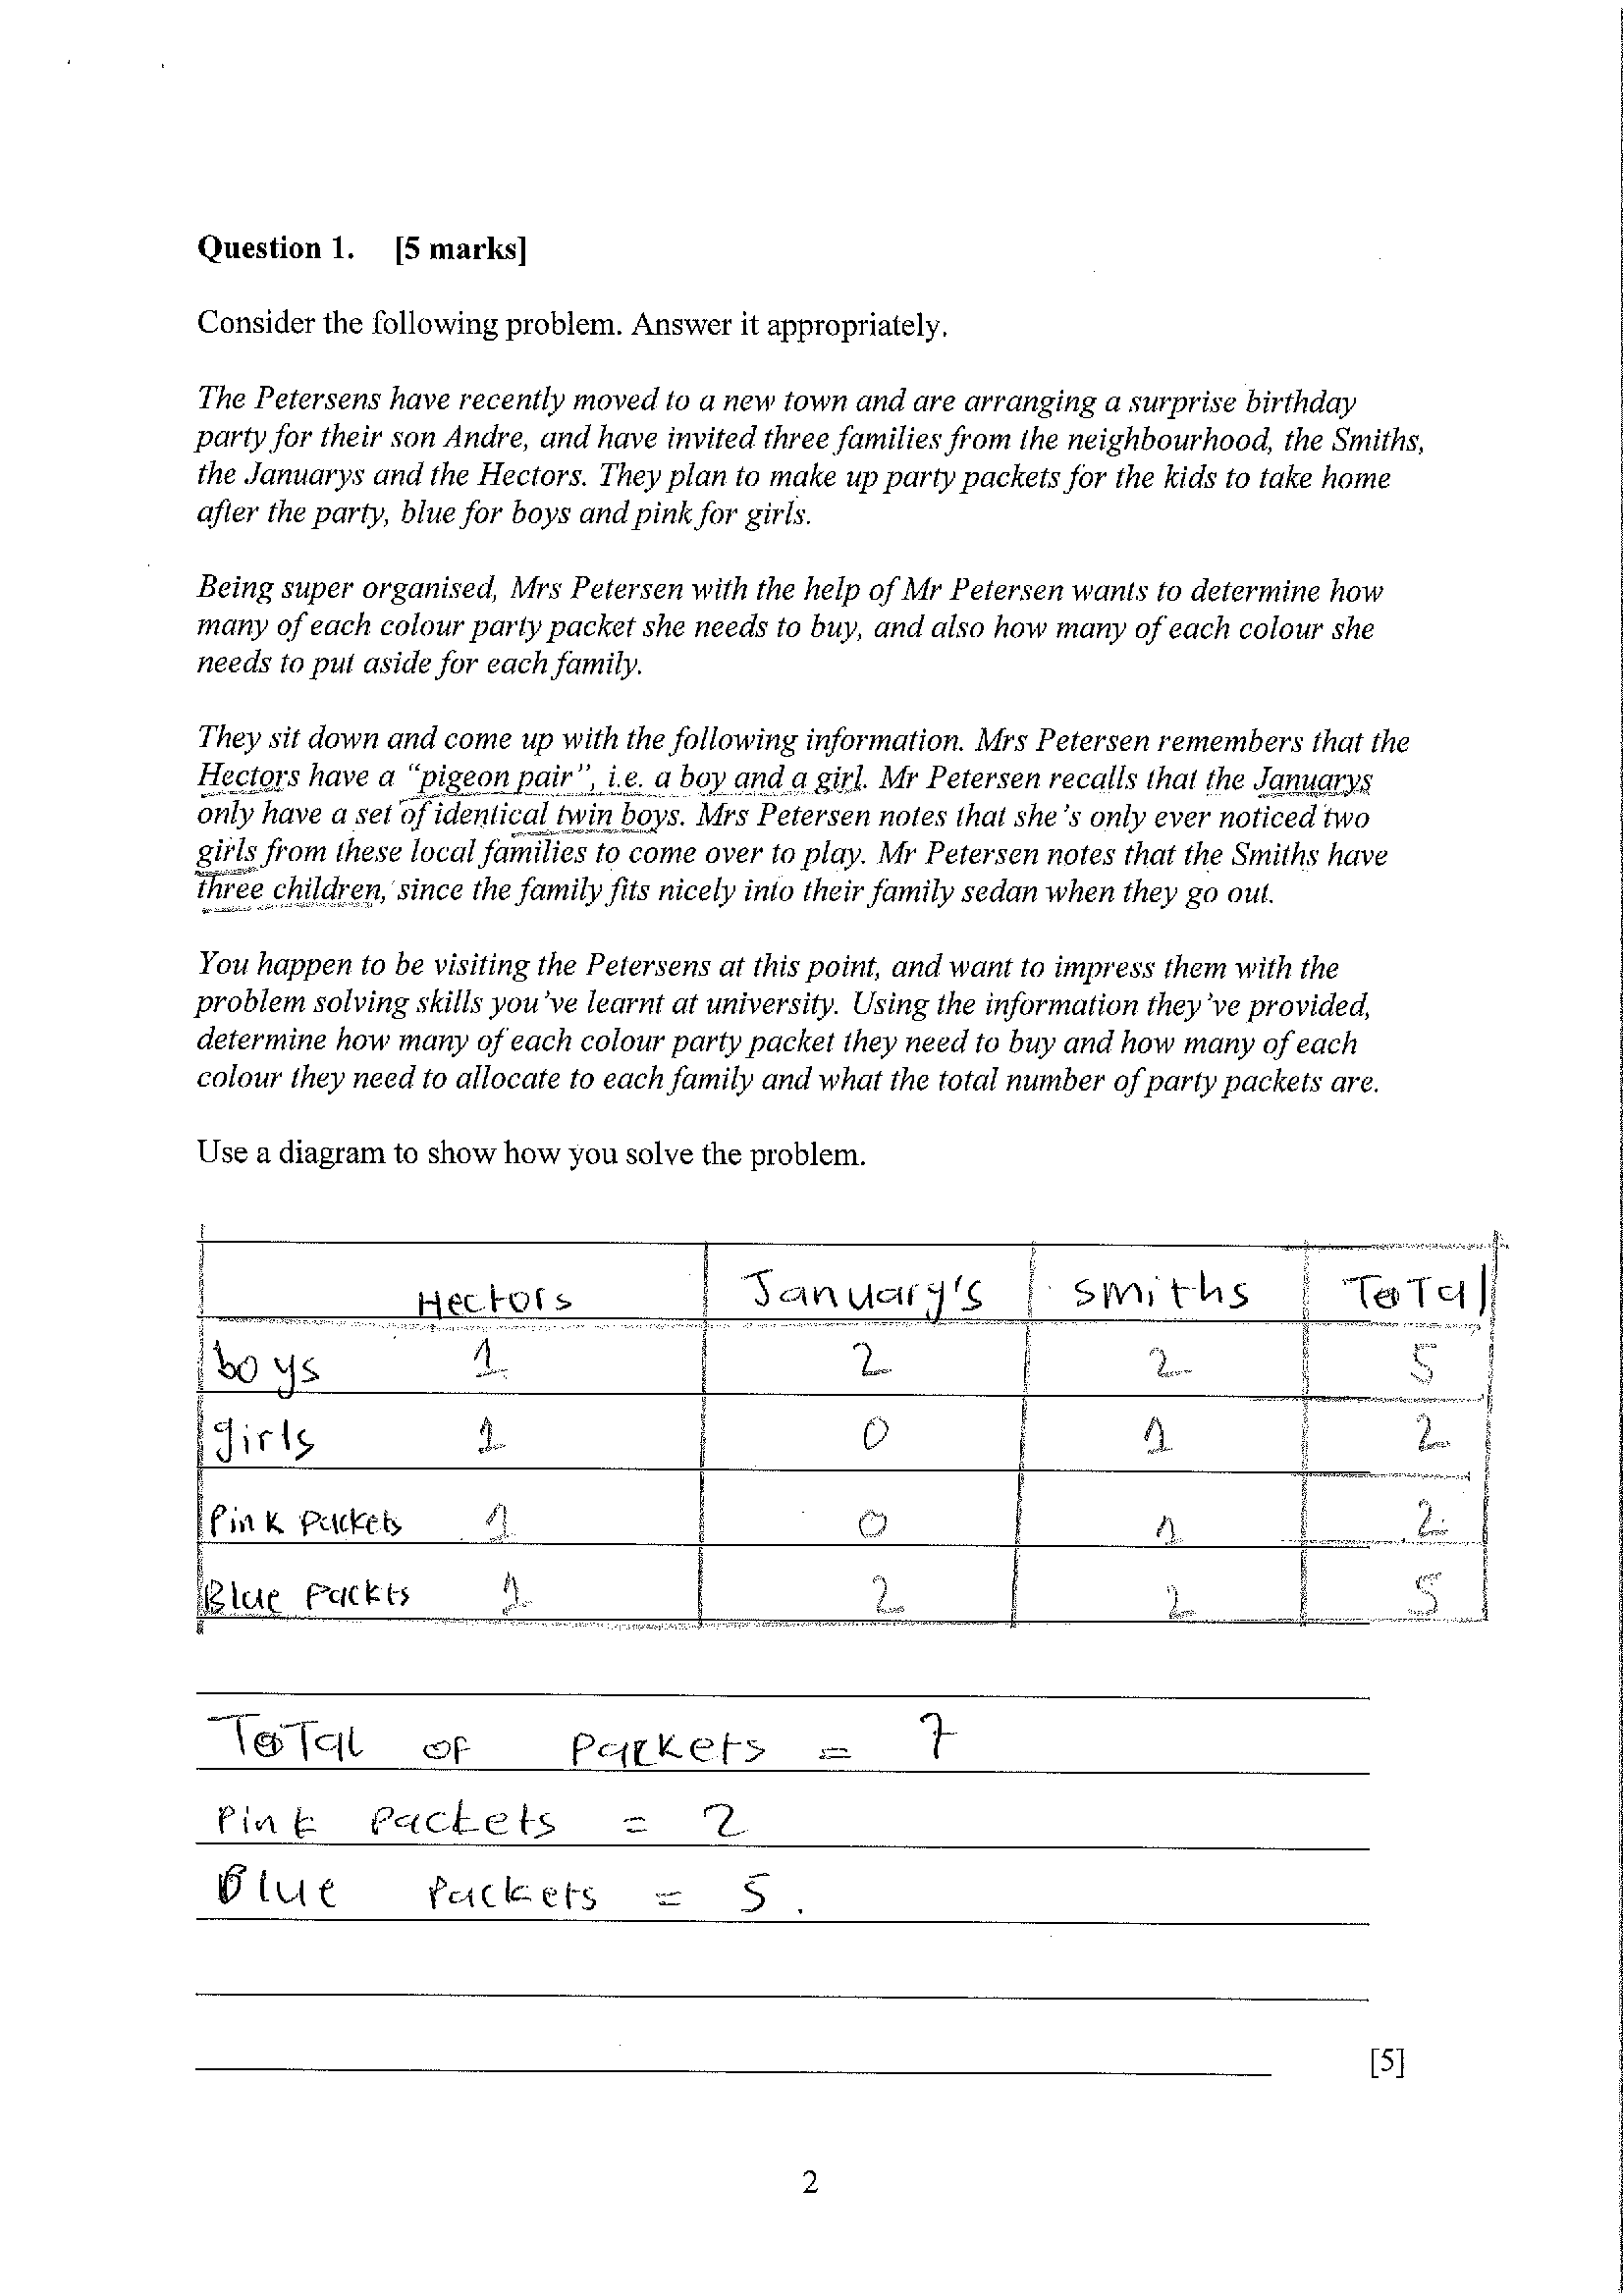 Question 1. [5 marks]
Consider the following problem. Answer it appropriately.
The Petersens have recently moved to a new town and are arranging a surprise birthday
party for their son Andre, and have invited three families from the neighbourhood, the Smiths,
the Januarys and the Hectors. They plan to make up party packets for the kids to take home
after the party, blue for boys and pink for girls.
Being super organised, Mrs Petersen with the help of Mr Petersen wants to determine how
many of each colour party packet she needs to buy, and also how many of each colour she
needs to put aside for each family.
They sit down and come up with the following information. Mrs Petersen remembers that the
Hectors have a “pigeon pair”, i.e. a boy and a girl. Mr Petersen recalls that the Januarys
only have a set of identical twin boys. Mrs Petersen notes that she’s only ever noticed two
girls from these local families to come over to play. Mr Petersen notes that the Smiths have
three children, since the family fits nicely into their family sedan when they go out.
You happen to be visiting the Petersens at this point, and want to impress them with the
problem solving skills you’ve learnt at university. Using the information they’ve provided,
determine how many of each colour party packet they need to buy and how many of each
colour they need to allocate to each family and what the total number of party packets are.
Use a diagram to show how you solve the problem.
Hectors January's smiths ToTal
boys 1 2 2 5
girls 1 0 1 2
Pink Packets 1 0 1 2
Blue Packts 1 2 2 5
ToTal of Packets = 7
Pink Packets = 2
Blue Packets = 5.
[5]
2